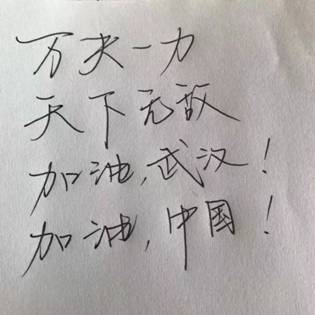 万夫一力
天下无敌
加油,武汉!
加油,中国!